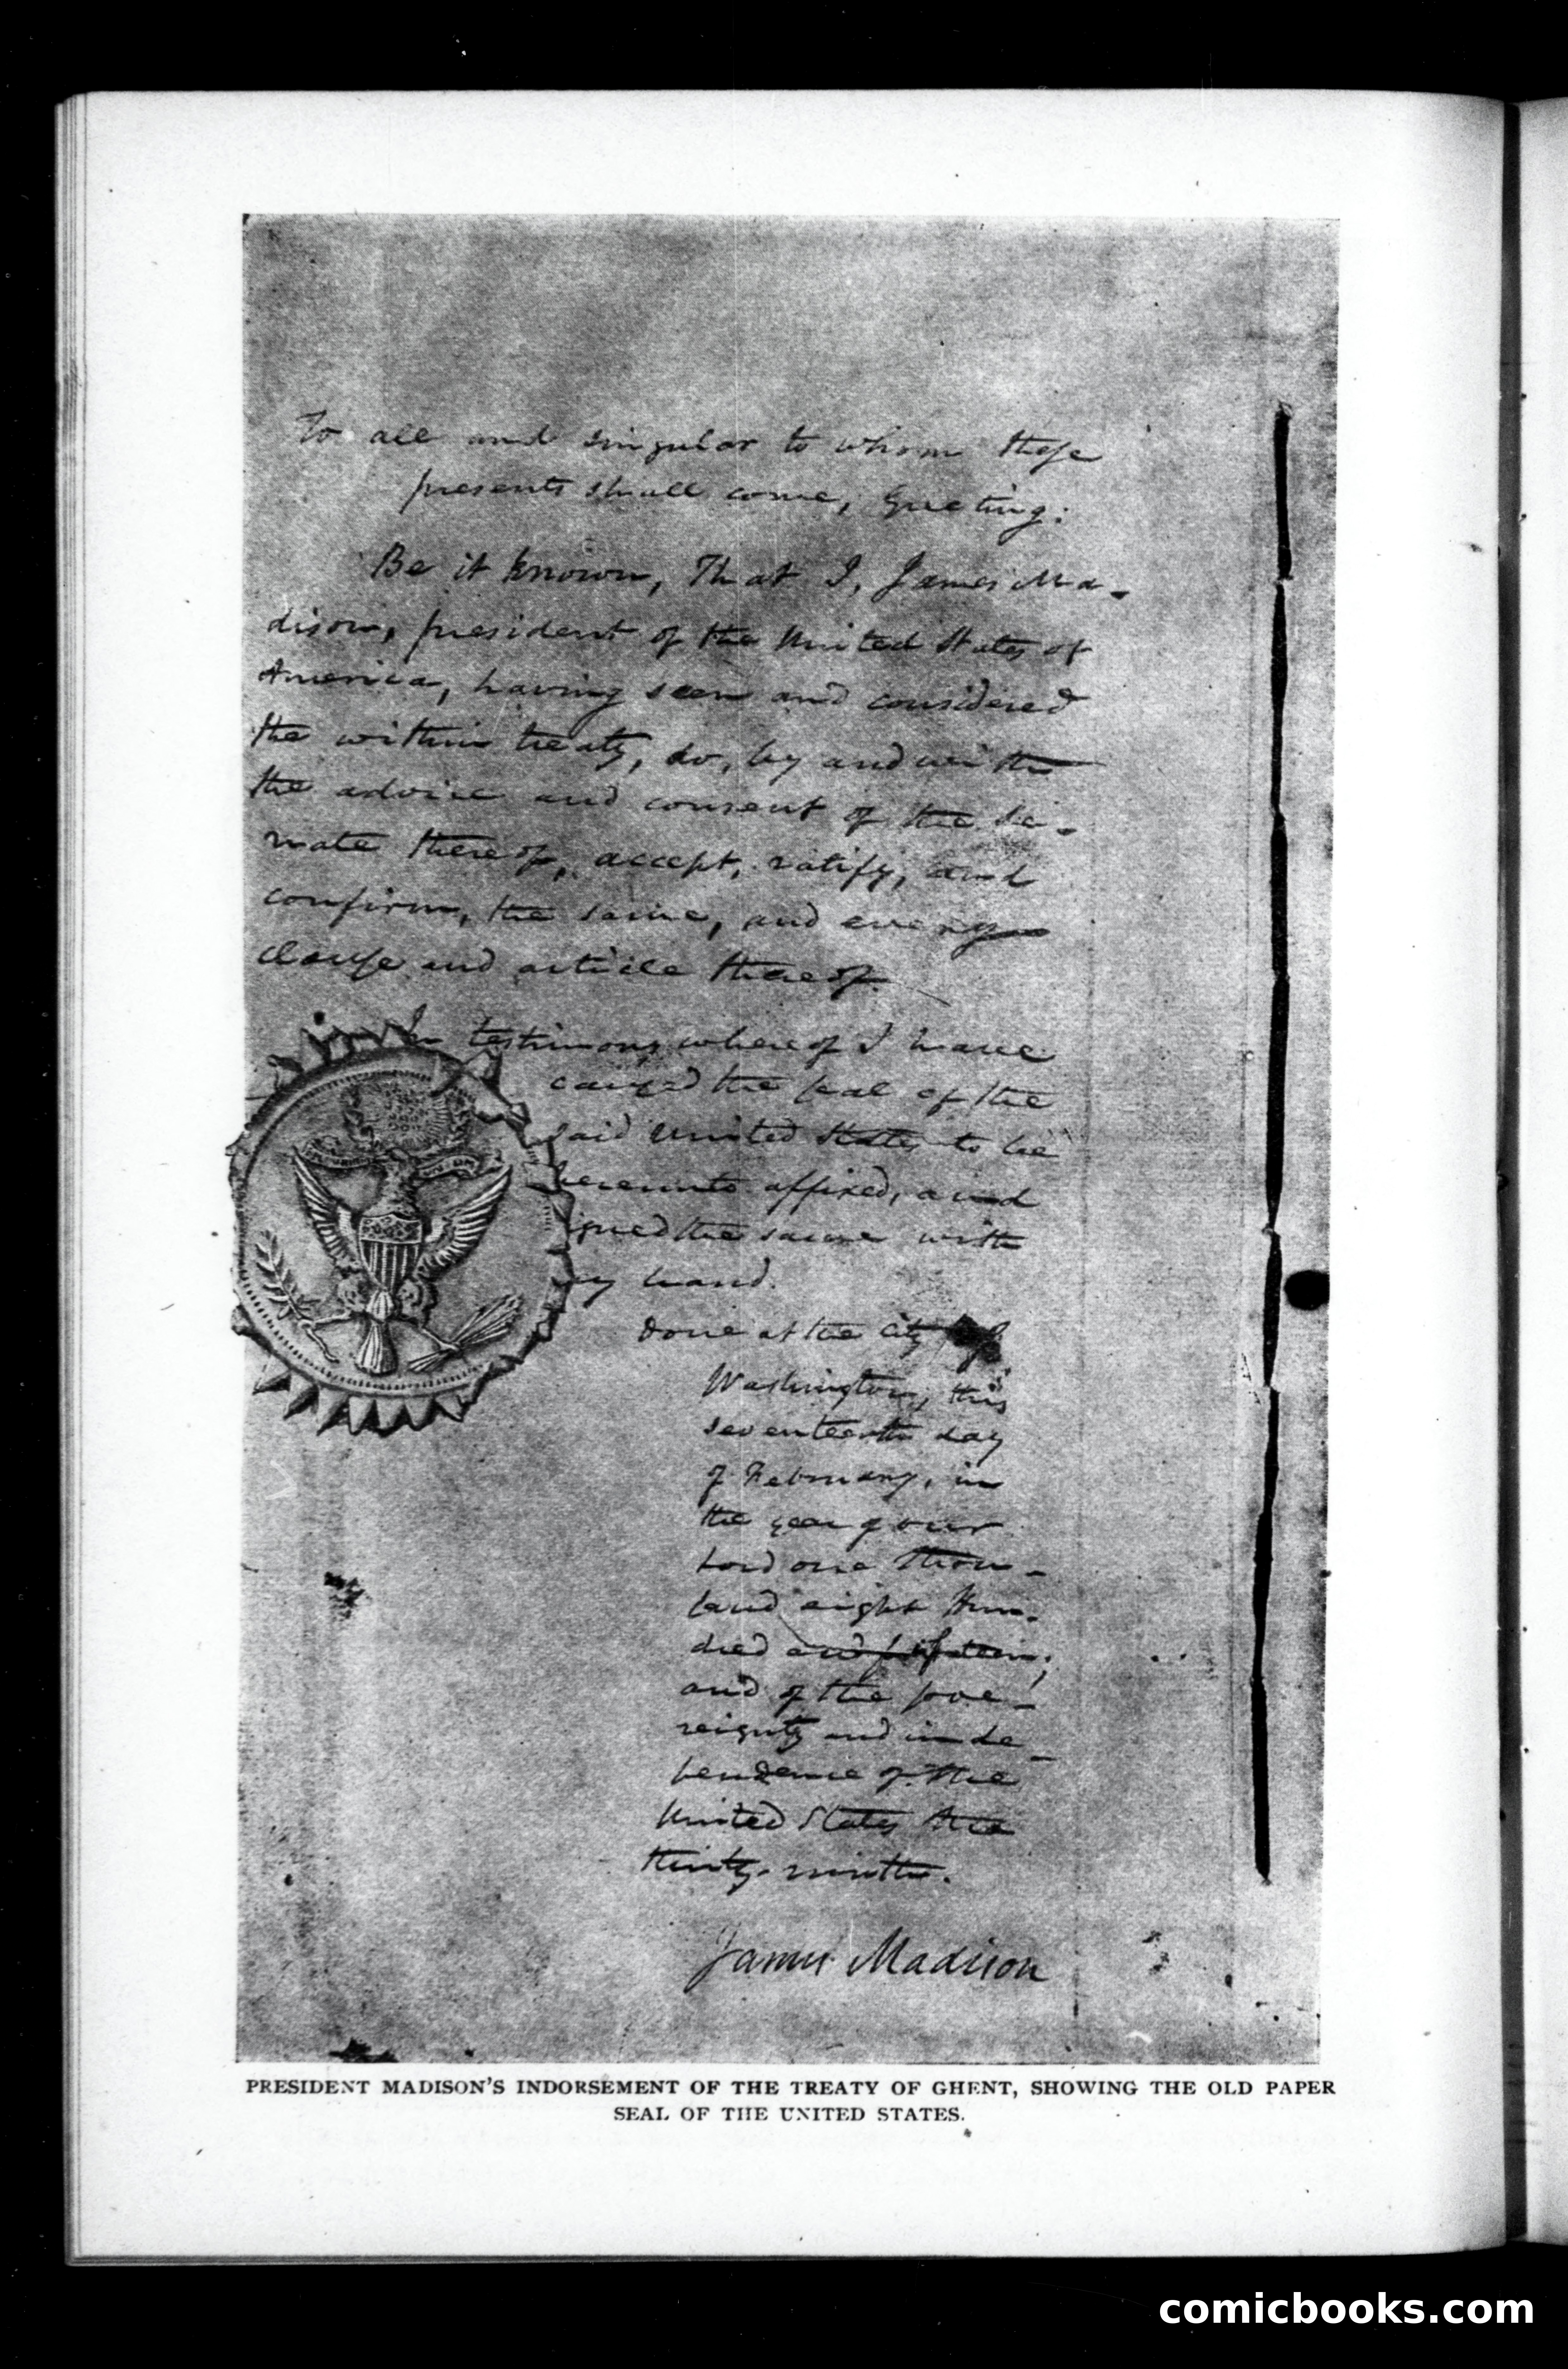 To all and singular to whom these
presents shall come, Greeting:
Be it known, That I, James Ma-
dison, president of the United States of
America, having seen and considered
the within treaty, do, by and with
the advice and consent of the Se-
nate thereof, accept, ratify, and
confirm, the same, and every
clause and article thereof.
In testimony whereof I have
caused the seal of the
said United States to be
hereunto affixed, and
signed the same with
my hand.
Done at the City of
Washington, this
seventeenth day
of February, in
the year of our
Lord one thou-
sand eight hun-
dred and fifteen;
and of the sove-
reignty and inde-
pendence of the
United States the
thirty-ninth.
James Madison
PRESIDENT MADISON'S INDORSEMENT OF THE TREATY OF GHENT, SHOWING THE OLD PAPER
SEAL OF THE UNITED STATES.
comicbooks.com